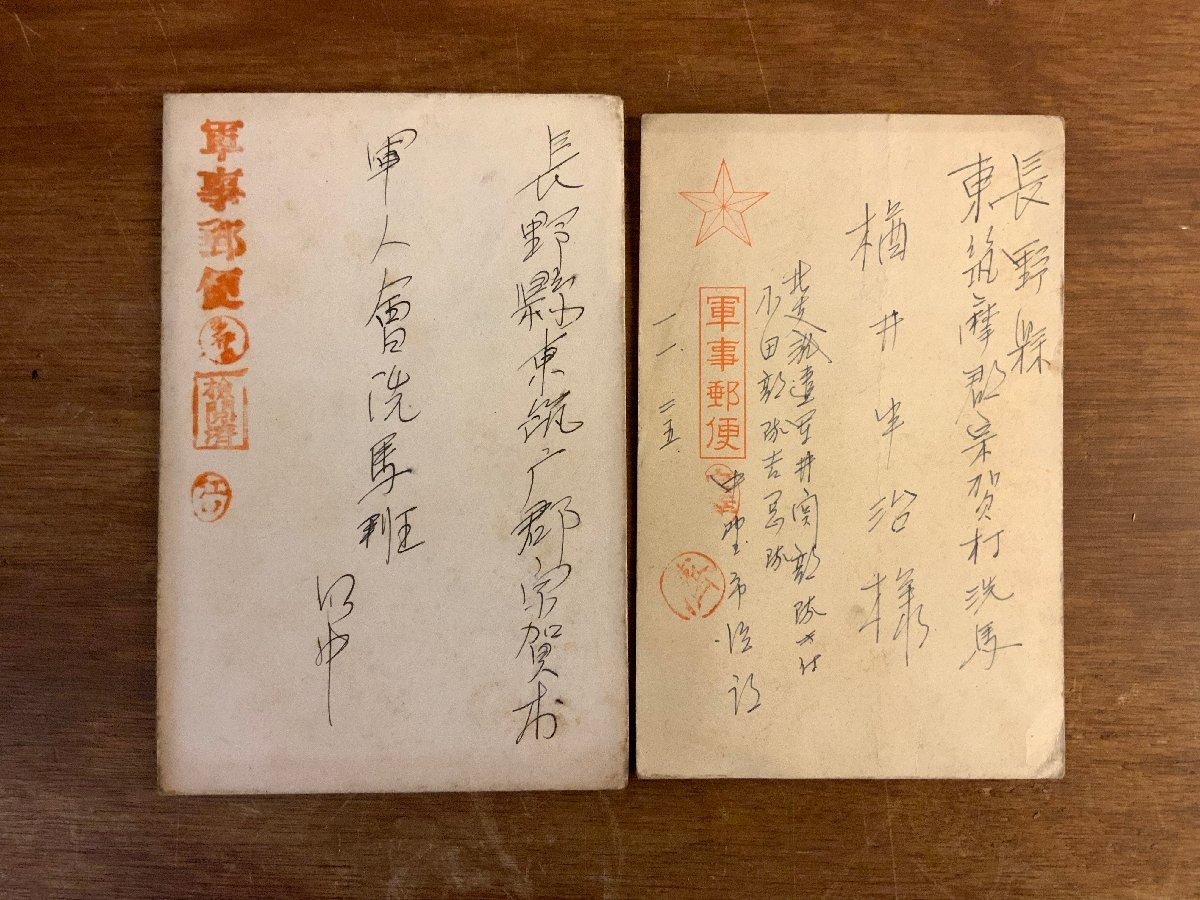 長野縣東筑广郡宗賀村
軍人會洗馬班
御中
軍事郵便
検閲済
長野縣
東筑摩郡宗賀村洗馬
楢井半治様
軍事郵便
北支派遣軍井関部隊気付
石田部隊吉忍隊
一一、二五